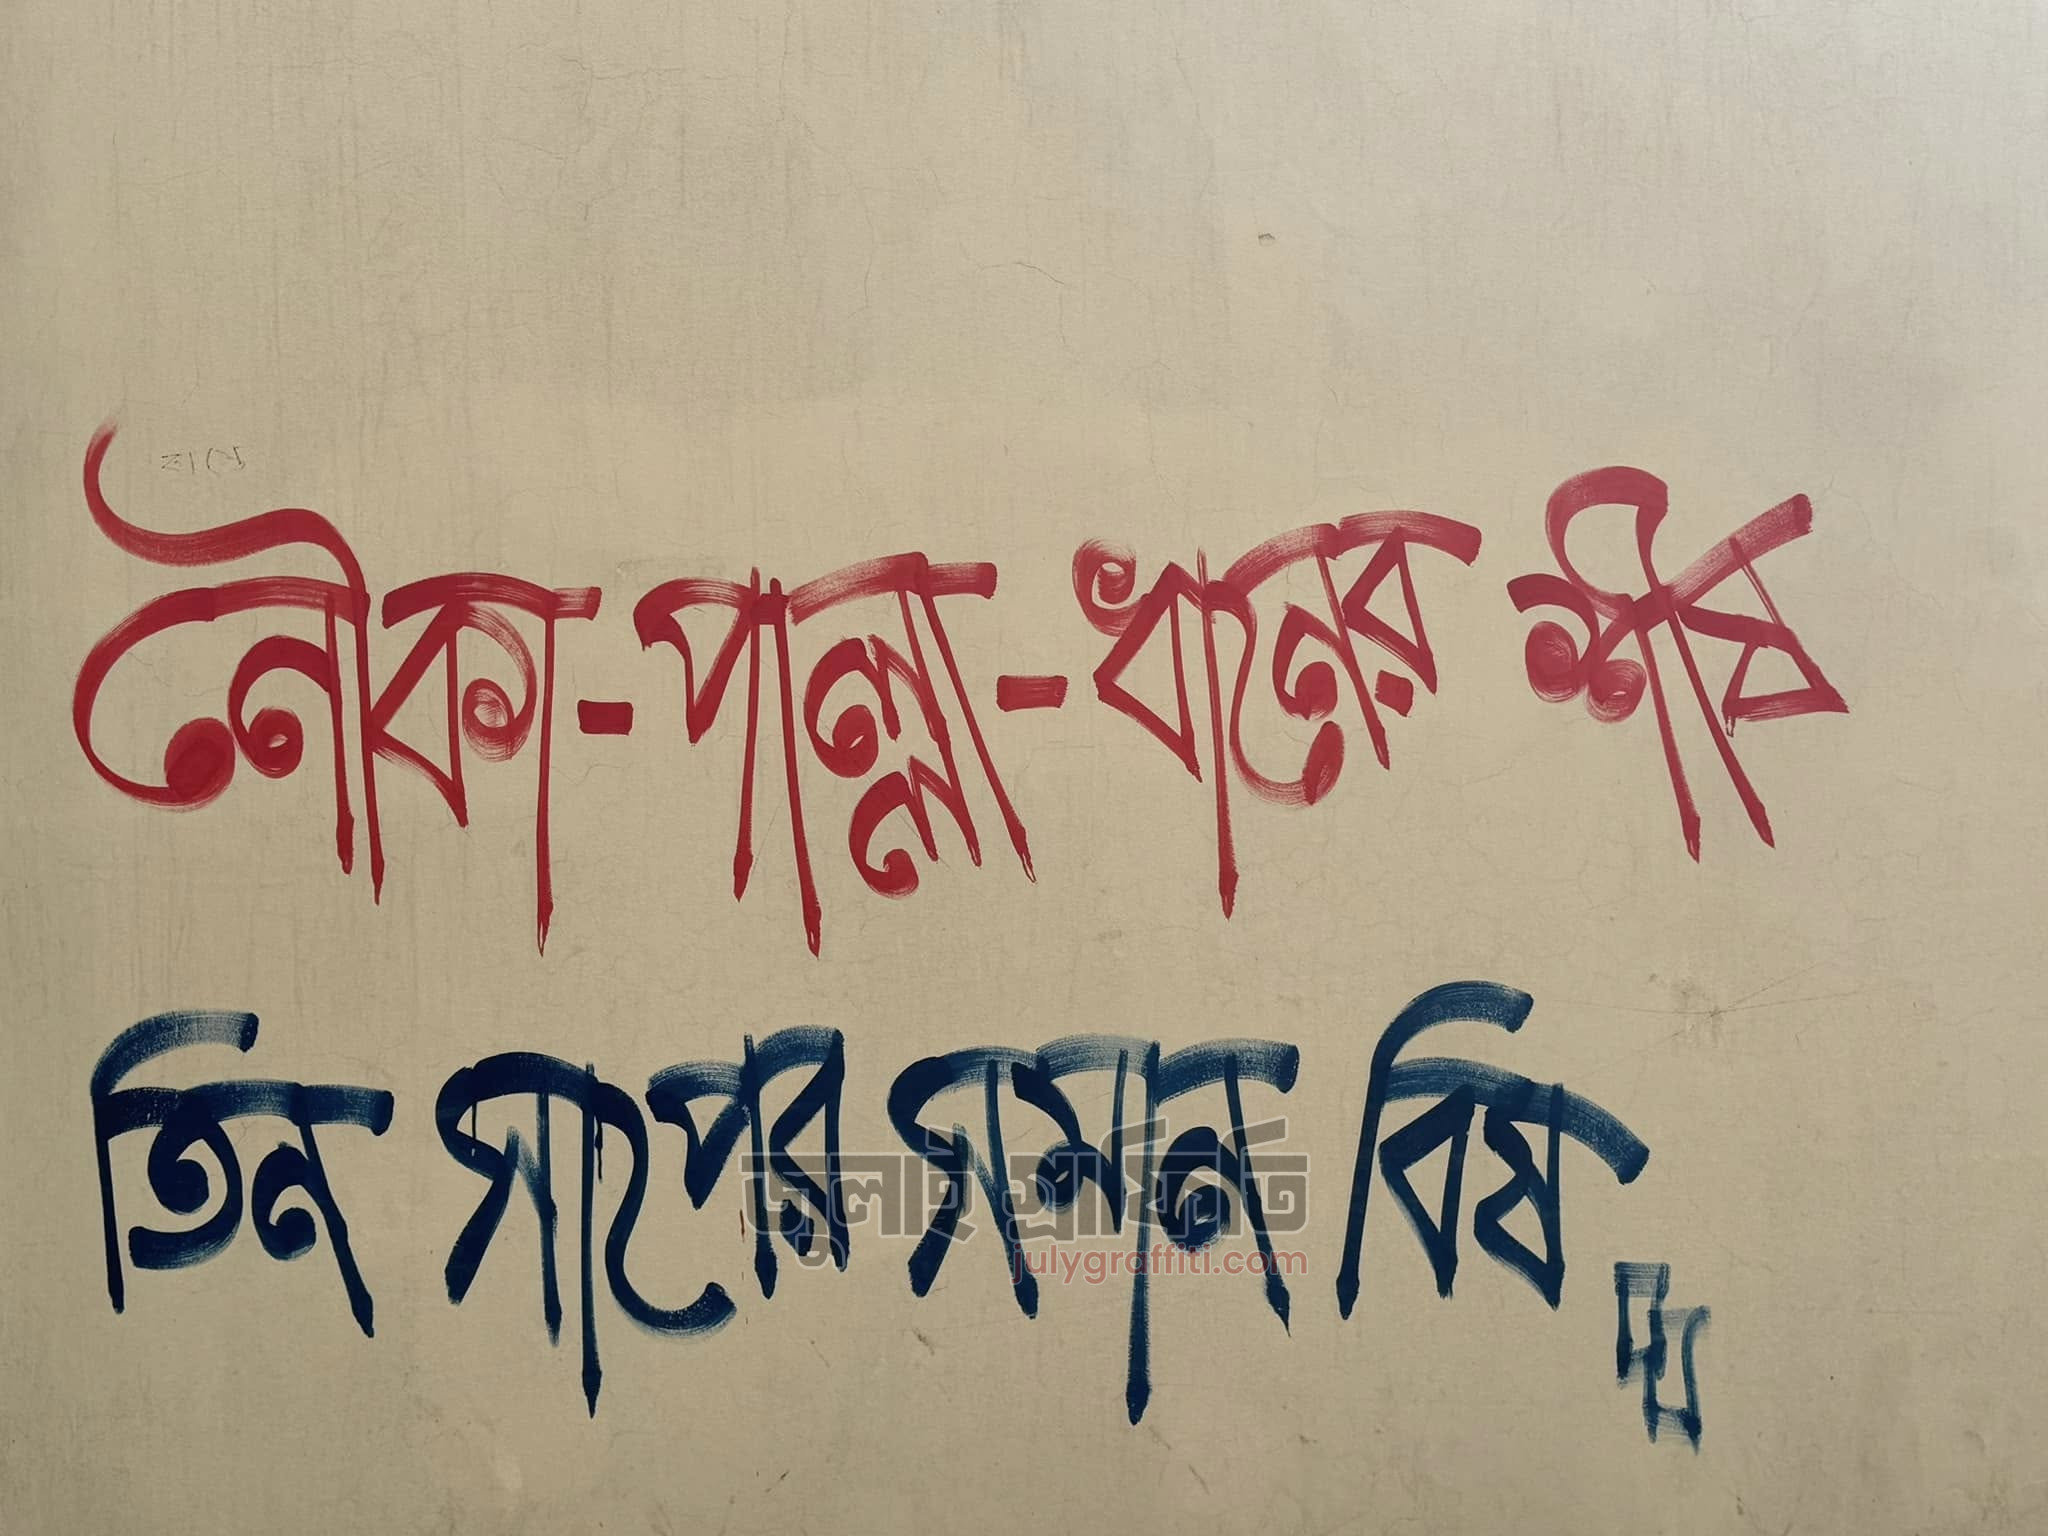 নৌকা-পাল্লা-ধানের শীষ
তিন সাপের সমান বিষ
জুলাই গ্রাফিতি
julygraffiti.com